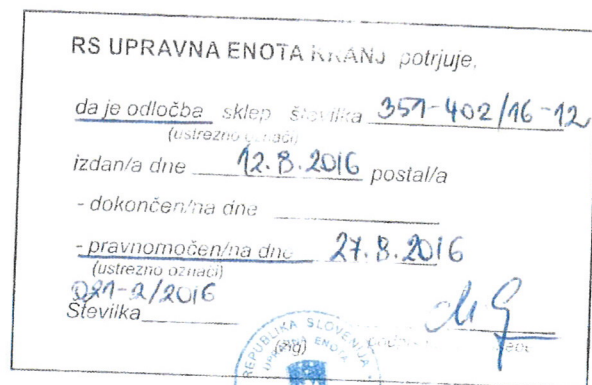 RS UPRAVNA ENOTA KRANJ potrjuje,
da je odločba sklep številka 351-402/16-12
(ustrezno označi)
izdan/a dne 12.8.2016 postal/a
- dokončen/na dne
- pravnomočen/na dne 27.8.2016
(ustrezno označi)
021-2/2016
Številka
(žig)
REPUBLIKA SLOVENIJA
UPRAVNA ENOTA